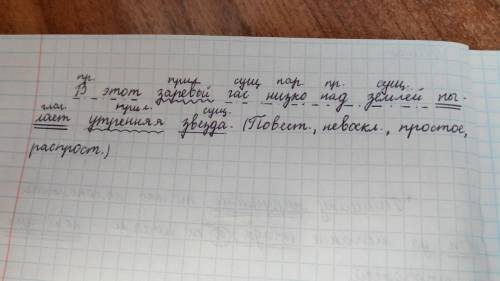 пр. прил. сущ. нар. пр. сущ.
В этот заревой час низко над землей пы-
глаг. прил. сущ.
лает утренняя звезда. (Повест., невоскл., простое,
распрост.)